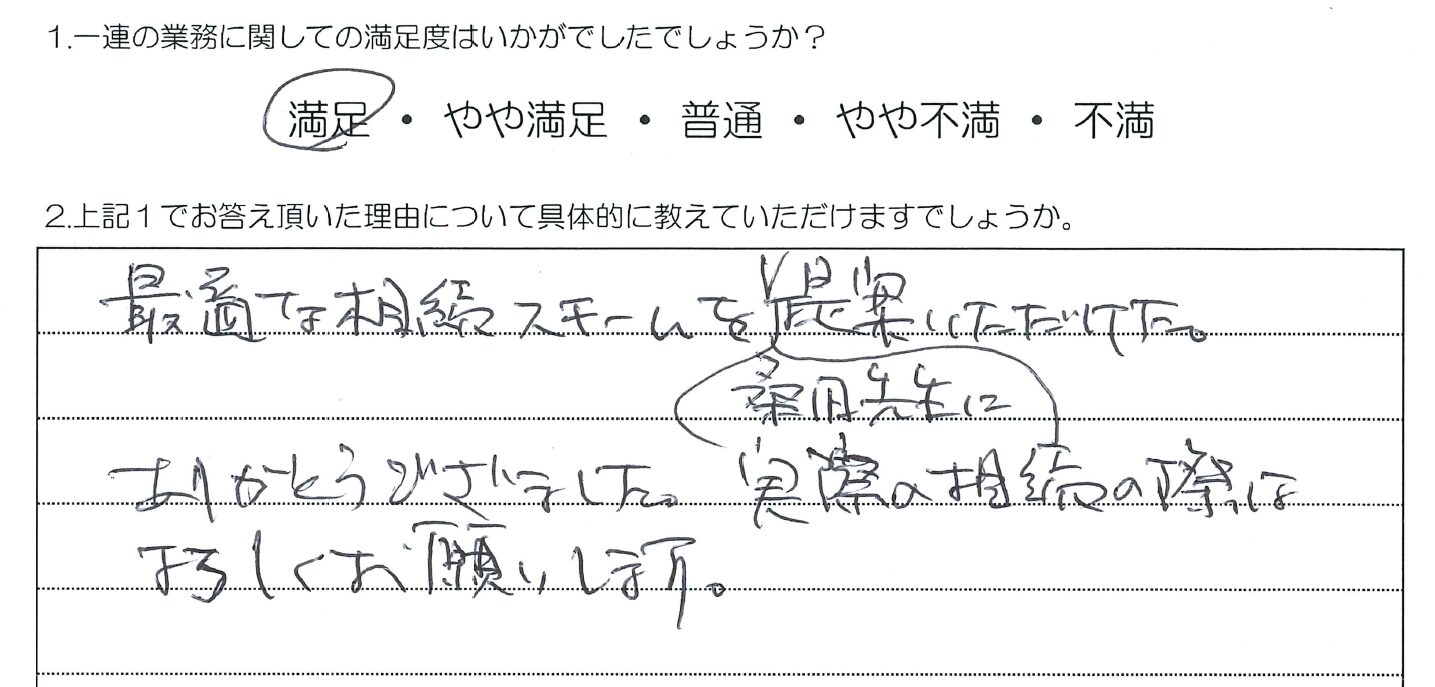 1.一連の業務に関しての満足度はいかがでしたでしょうか？
満足 ・ やや満足 ・ 普通 ・ やや不満 ・ 不満
2.上記１でお答え頂いた理由について具体的に教えていただけますでしょうか。
最適な相続スキームを提案いただけた。
桑田先生に
ありがとうございました。実際の相続の際は
よろしくお願いします。